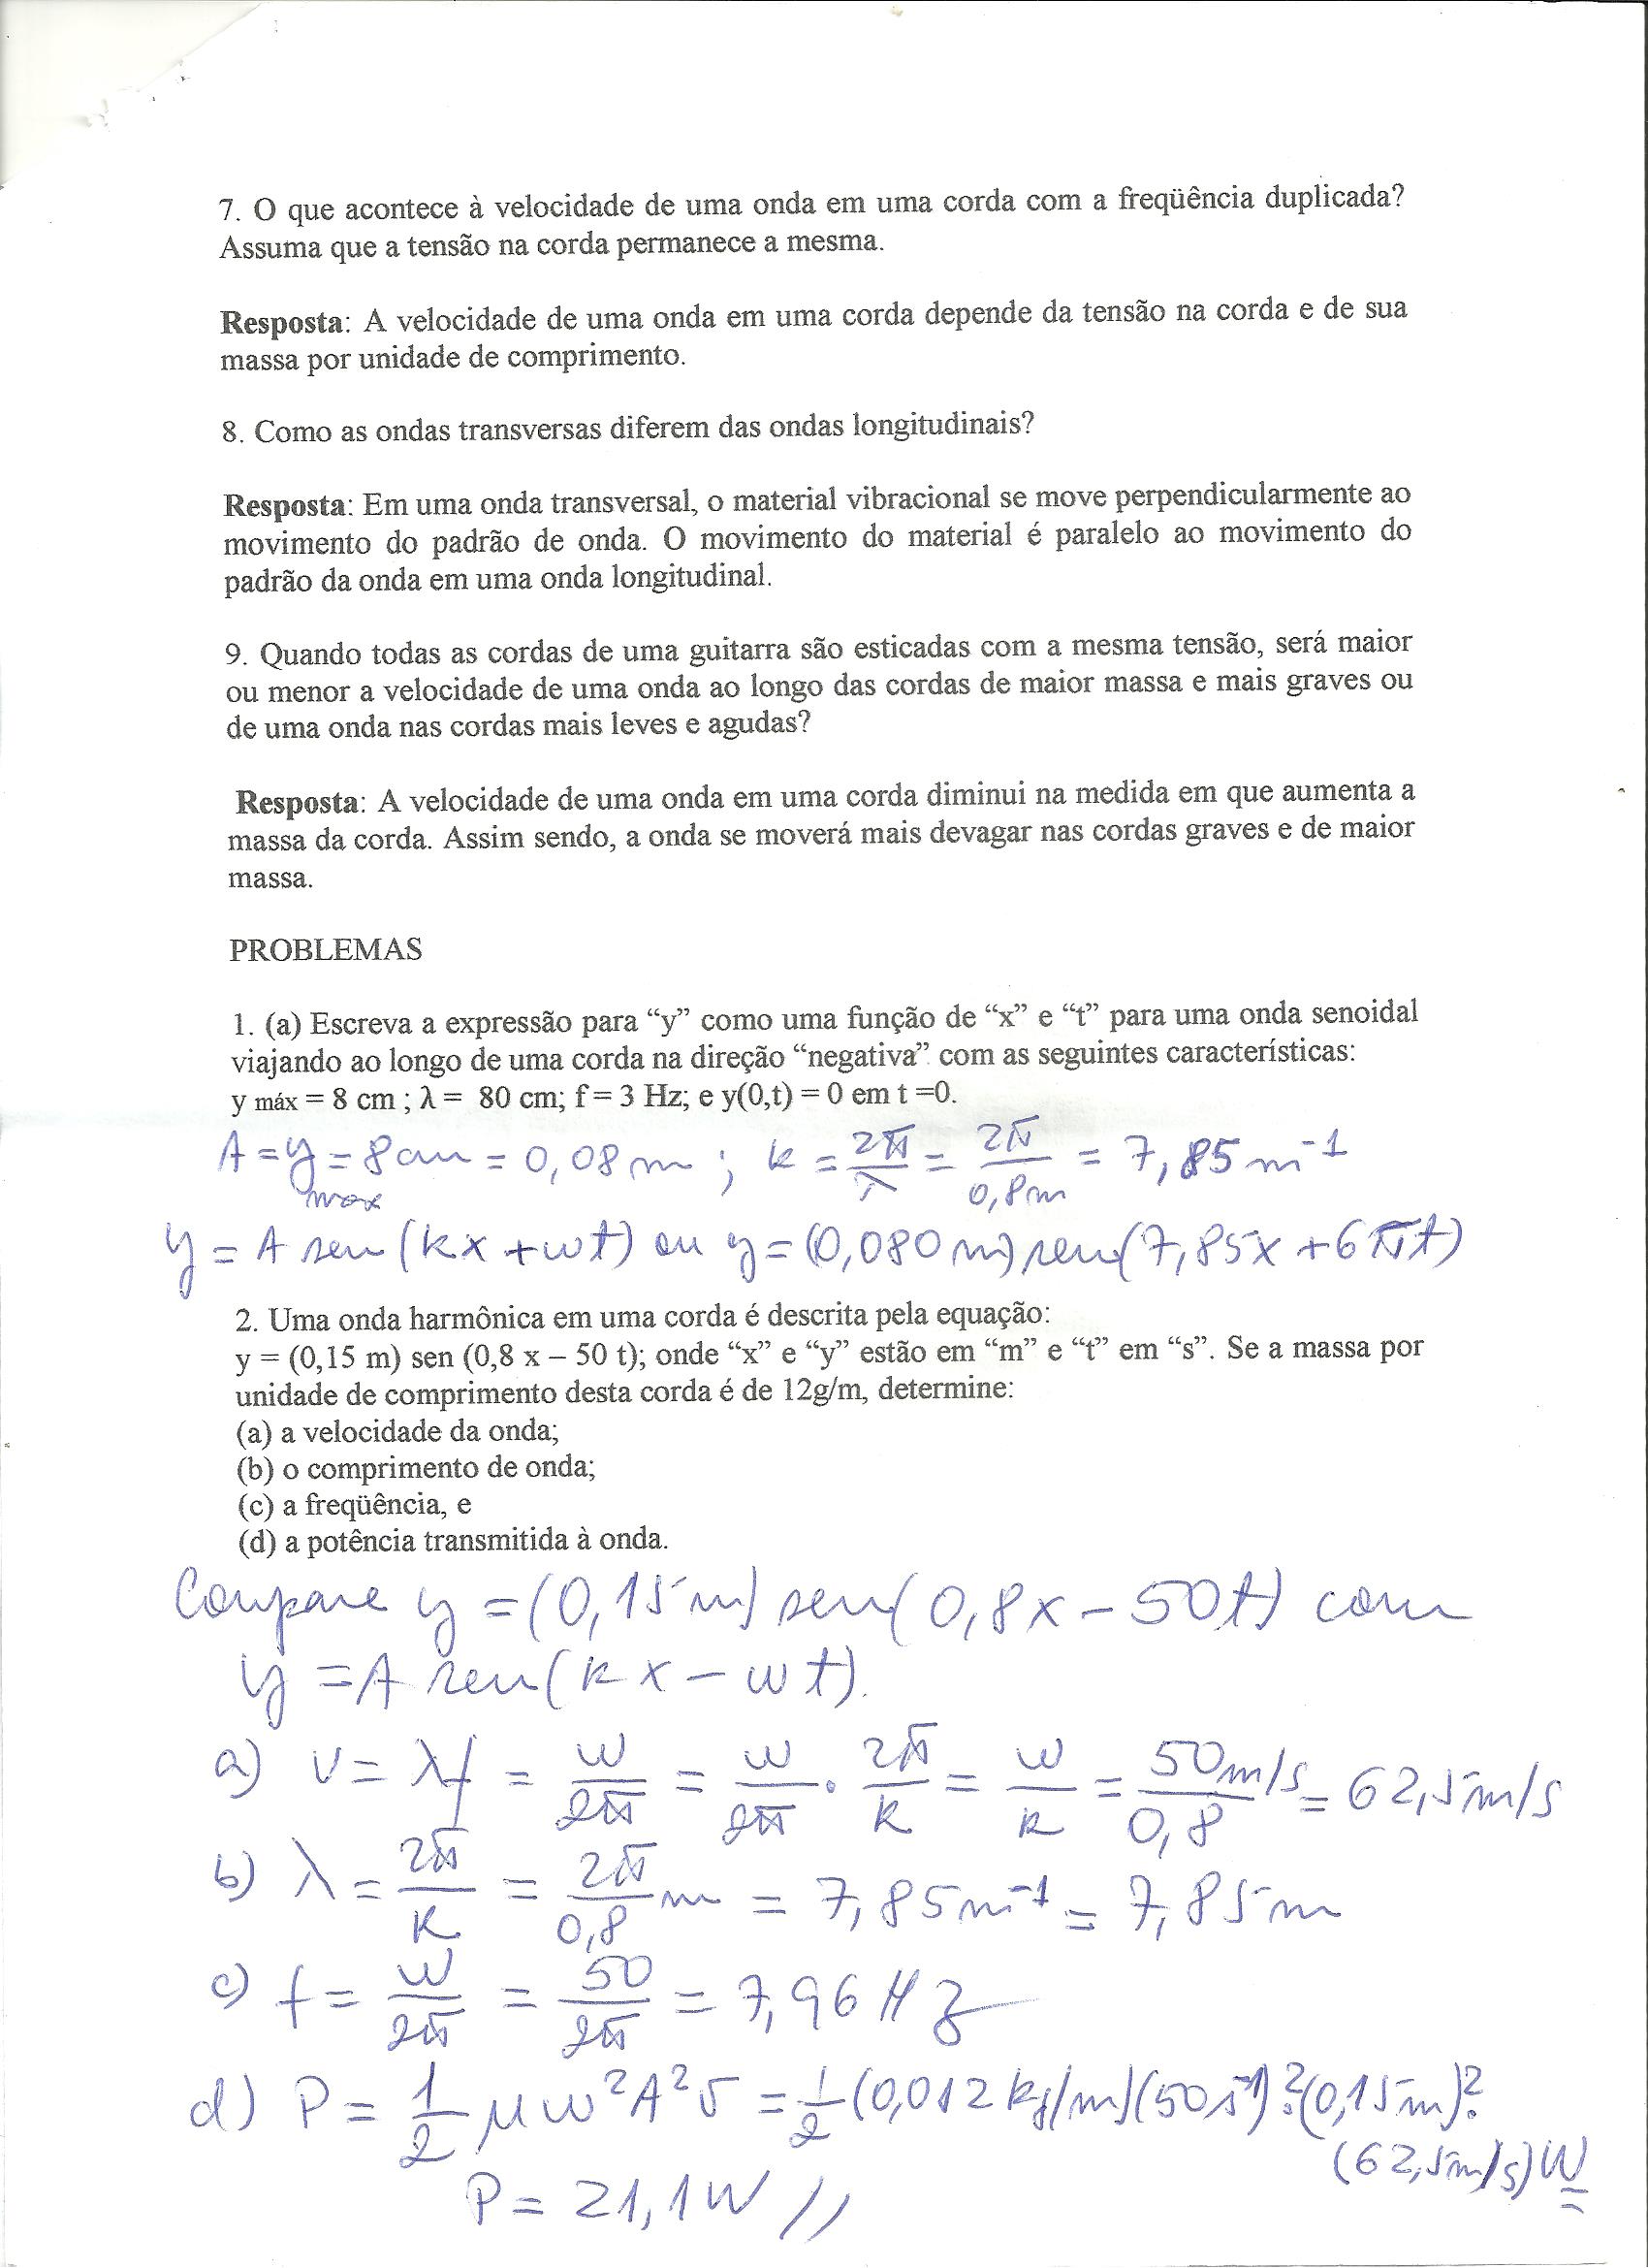 7. O que acontece à velocidade de uma onda em uma corda com a freqüência duplicada?
Assuma que a tensão na corda permanece a mesma.
Resposta: A velocidade de uma onda em uma corda depende da tensão na corda e de sua
massa por unidade de comprimento.
8. Como as ondas transversas diferem das ondas longitudinais?
Resposta: Em uma onda transversal, o material vibracional se move perpendicularmente ao
movimento do padrão de onda. O movimento do material é paralelo ao movimento do
padrão da onda em uma onda longitudinal.
9. Quando todas as cordas de uma guitarra são esticadas com a mesma tensão, será maior
ou menor a velocidade de uma onda ao longo das cordas de maior massa e mais graves ou
de uma onda nas cordas mais leves e agudas?
Resposta: A velocidade de uma onda em uma corda diminui na medida em que aumenta a
massa da corda. Assim sendo, a onda se moverá mais devagar nas cordas graves e de maior
massa.
PROBLEMAS
1. (a) Escreva a expressão para “y” como uma função de “x” e “t” para uma onda senoidal
viajando ao longo de uma corda na direção “negativa” com as seguintes características:
y máx = 8 cm ; λ = 80 cm; f = 3 Hz; e y(0,t) = 0 em t =0.
A = y max = 8 cm = 0,08 m ; k = 2π/λ = 2π/0,8m = 7,85 m⁻¹
y = A sen (kx + wt) ou y = (0,080 m) sen (7,85x + 6πt)
2. Uma onda harmônica em uma corda é descrita pela equação:
y = (0,15 m) sen (0,8 x – 50 t); onde “x” e “y” estão em “m” e “t” em “s”. Se a massa por
unidade de comprimento desta corda é de 12g/m, determine:
(a) a velocidade da onda;
(b) o comprimento de onda;
(c) a freqüência, e
(d) a potência transmitida à onda.
Compare y = (0,15 m) sen (0,8x – 50t) com
y = A sen (kx – wt).
a) v = λf = w/2π = w/2π . 2π/k = w/k = 50m/s/0,8 = 62,5 m/s
b) λ = 2π/k = 2π/0,8 m = 7,85 m⁻¹ = 7,85 m
c) f = w/2π = 50/2π = 7,96 Hz
d) P = 1/2 μ w² A² v = 1/2 (0,012 kg/m) (50 s⁻¹)². (0,15 m)².
(62,5 m/s) W
P = 21,1 W //